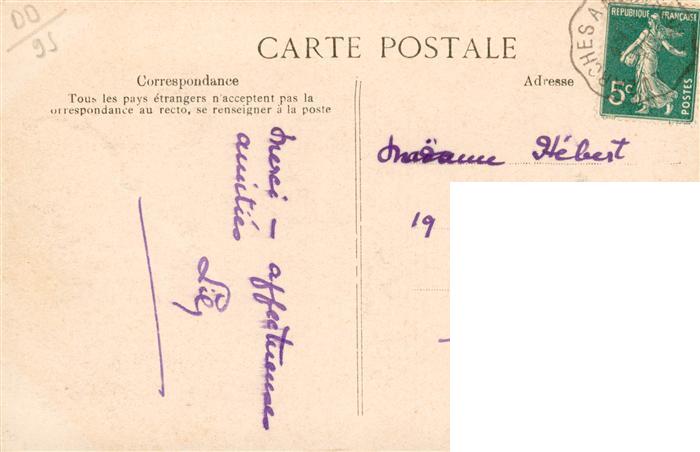 DD
95
CARTE POSTALE
Correspondance
Tous les pays étrangers n'acceptent pas la
correspondance au recto, se renseigner à la poste
Merci — affectueuses
amitiés
Adresse
Madame Hébert
19
RÉPUBLIQUE FRANÇAISE
5c
POSTES